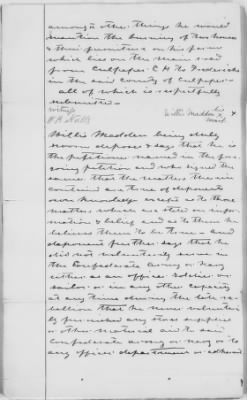 among other things he would
mention the burning of two houses
& their furniture on his farm
which lies on the main road
from Culpeper C H to Fredericks
in the said County of Culpeper
all of which is respectfully
submitted.
witness
his
Willis Madden x
mark
Willis Madden being duly
sworn deposes & say that he is
the petitioner named in the fore
going petition and who signed the
same that the matters therein
contained are true of deponents
own knowledge except as to those
matters which are stated on infor
mation & belief and as to them he
believes them to be true - and
deponent further says that he
did not voluntarily serve in
the Confederate Army or Navy
either as an officer soldier or
sailor or in any other capacity
at any time during the late re-
bellion that he never voluntari
ly furnished any stores supplies
or other material aid to said
Confederate army or navy or to
any officer department or adherent